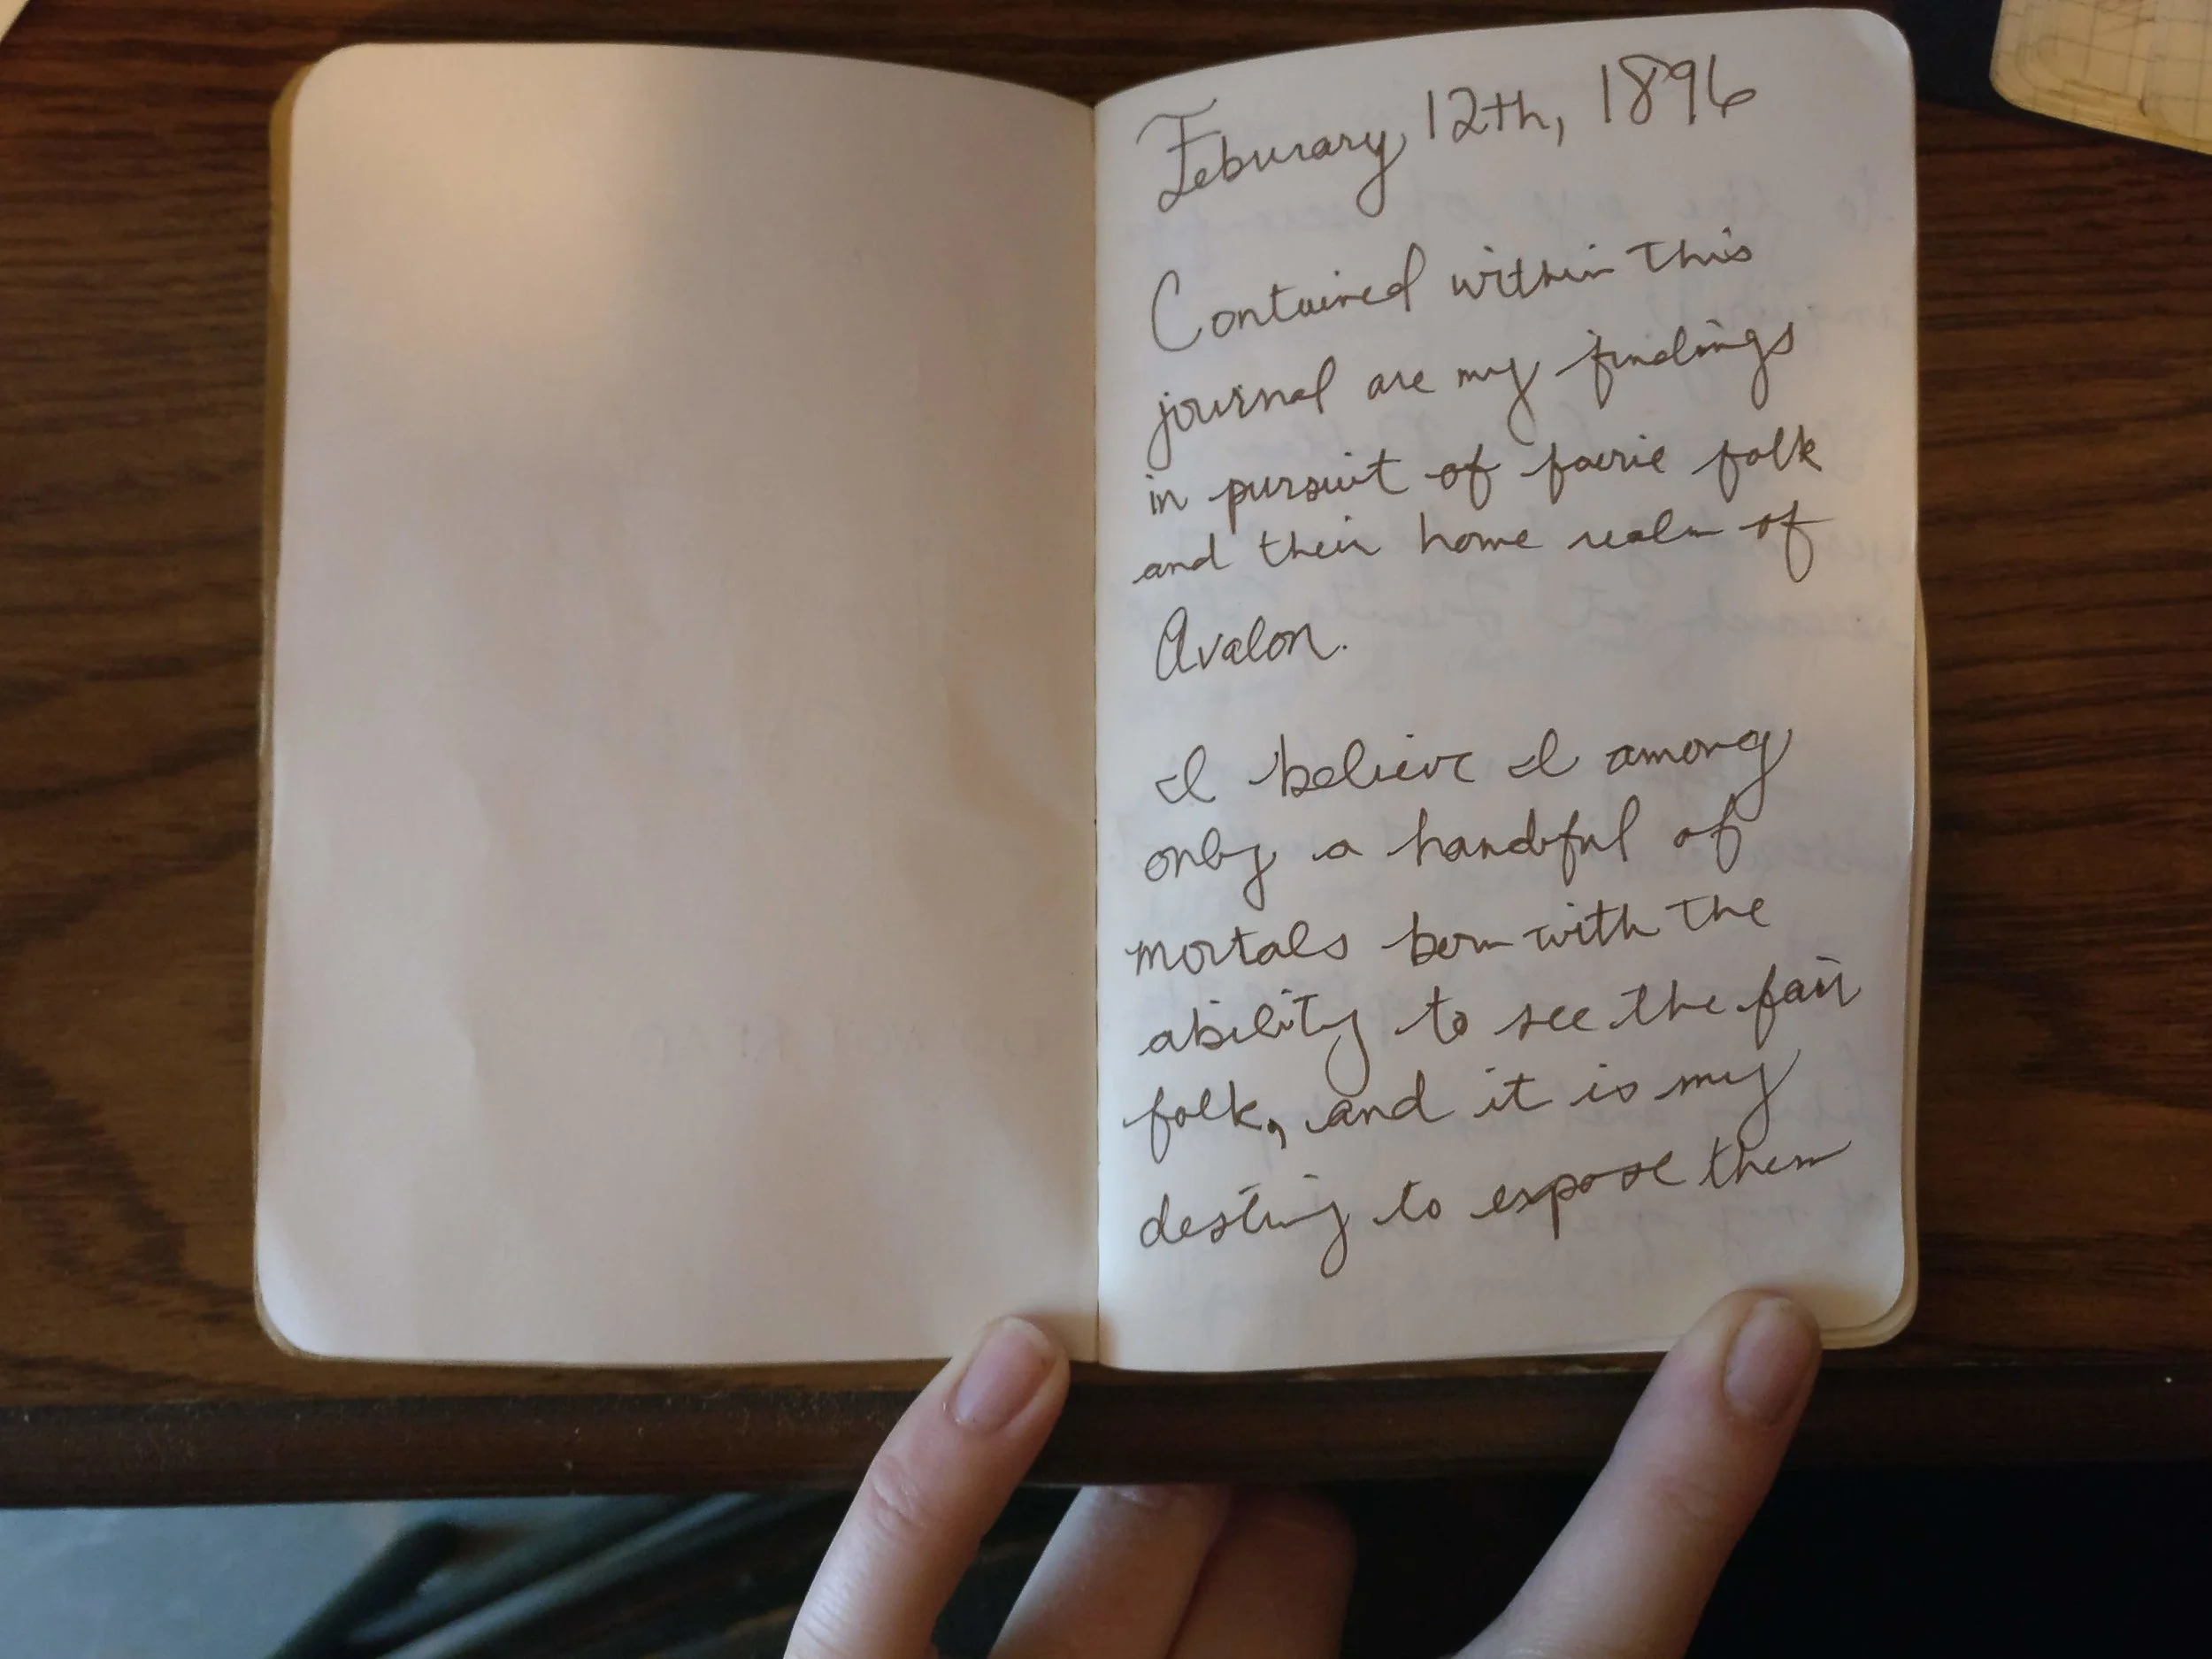 Feburary 12th, 1896
Contained within this
journal are my findings
in pursuit of faerie folk
and their home realm of
Avalon.
I believe I among
only a handful of
mortals born with the
ability to see the fair
folk, and it is my
destiny to expose them